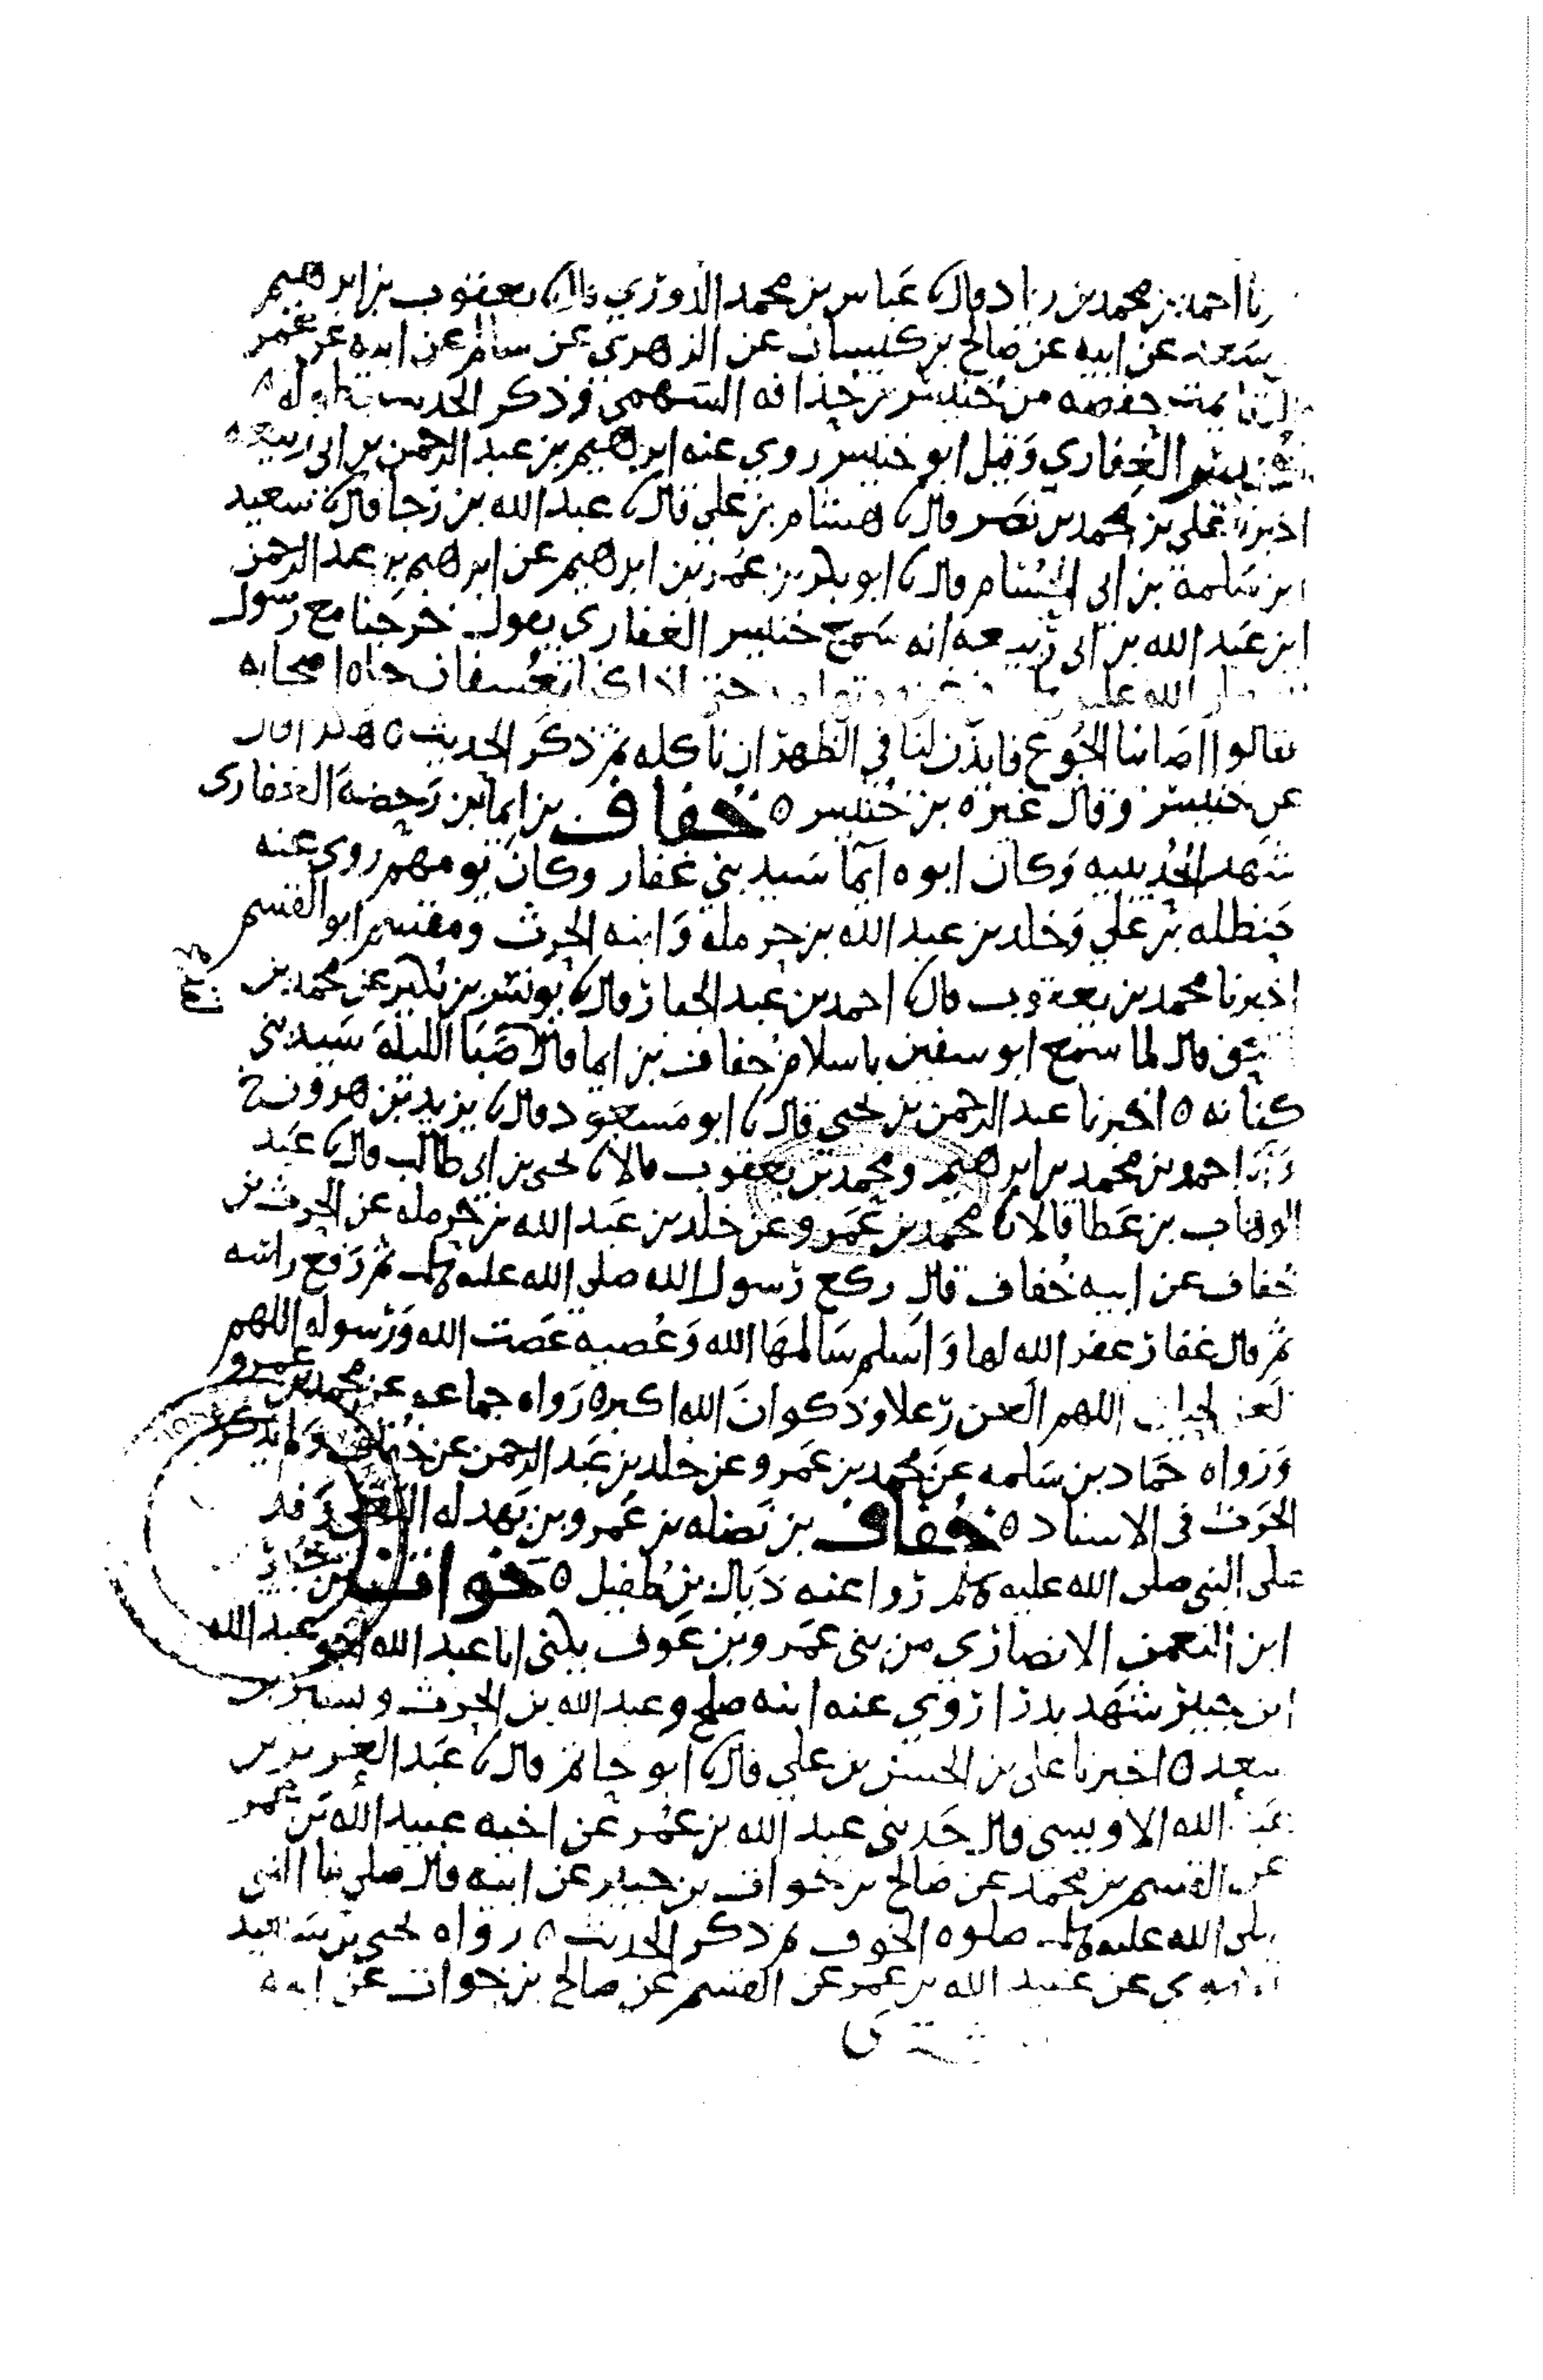 احمد بن محمد بن زياد قال عباس بن محمد الدوري قال يعقوب بن ابرهيم
سعد عن ابيه عن صالح بن كيسان عن الزهري عن سالم عن ابيه عن عمر
تايمت حفصه من خنيس بن حذافه السهمي وذكر الحديث بطوله ه
خنيس الغفاري وقيل ابو خنيس روي عنه ابرهيم بن عبد الرحمن بن ابي ربيعه
اخبرنا علي بن محمد بن نصر قال هشام بن علي قال عبد الله بن رجا قال سعيد
ابن سلمة بن ابي الحسام قال ابو بكر بن عمر بن ابرهيم عن ابرهيم بن عبد الرحمن
ابن عبد الله بن ابي ربيعه انه سمع خنيس الغفاري يقول خرجنا مع رسول
الله حتى اذا كنا بعسفان جاه اصحابه
فقالوا اصابنا الجوع فايذن لنا في الظهر ان ناكله ثم ذكر الحديث ه هكذا قال
عن خنيس وقال غيره بن خنيس ه خفاف بن ايما بن رحضة الغفاري
شهد الحديبيه وكان ابوه ايما سيد بني غفار وكان يومهم روي عنه
حنظله بن علي وخلد بن عبد الله بن حرمله وابنه الحرث ومقسم ابو القسم
اخبرنا محمد بن يعقوب قال احمد بن عبد الجبار قال يونس بن بكير عن محمد بن
قال لما سمع ابو سفين باسلام خفاف بن ايما قال صبا الليلة سيد بني
كنانه ه اخبرنا عبد الرحمن بن يحيى قال ابو مسعود قال يزيد بن هرون ح
احمد بن محمد بن ابرهيم ومحمد بن يعقوب قالا يحيى بن ابي طالب قال عبد
الوهاب بن عطا قالا محمد بن عمرو عن خلد بن عبد الله بن حرمله عن الحرث بن
خفاف عن ابيه خفاف قال ركع رسول الله صلى الله عليه وسلم ثم رفع راسه
ثم قال غفار غفر الله لها واسلم سالمها الله وعصيه عصت الله ورسوله اللهم
لعن لحيان اللهم العن رعلا وذكوان الله اكبر ه رواه جماعه عن محمد بن عمرو
ورواه حماد بن سلمه عن محمد بن عمرو عن خلد بن عبد الرحمن عن خفاف ولم يذكر
الحرث في الاسناد ه خفاف بن نضله بن عمرو بن بهدله الثقفي وفد
على النبي صلى الله عليه وسلم روا عنه ذبال بن طفيل ه خوات بن جبير
ابن النعمن الانصاري من بني عمرو بن عوف يكنى ابا عبد الله اخو عبد الله
ابن جبير شهد بدرا روي عنه ابنه صلح وعبد الله بن الحرث وبسر بن
سعد ه اخبرنا علي بن الحسن بن علي قال ابو حاتم قال عبد العزيز بن
عبد الله الاويسي قال حدثني عبد الله بن عمر عن اخيه عبيد الله بن عمر
عن القسم بن محمد عن صالح بن خوات بن جبير عن ابيه قال صلى بنا النبي
صلى الله عليه وسلم صلوه الخوف ثم ذكر الحديث ه رواه يحيى بن سعيد
عن عبيد الله بن عمر عن القسم عن صالح بن خوات عن ابيه